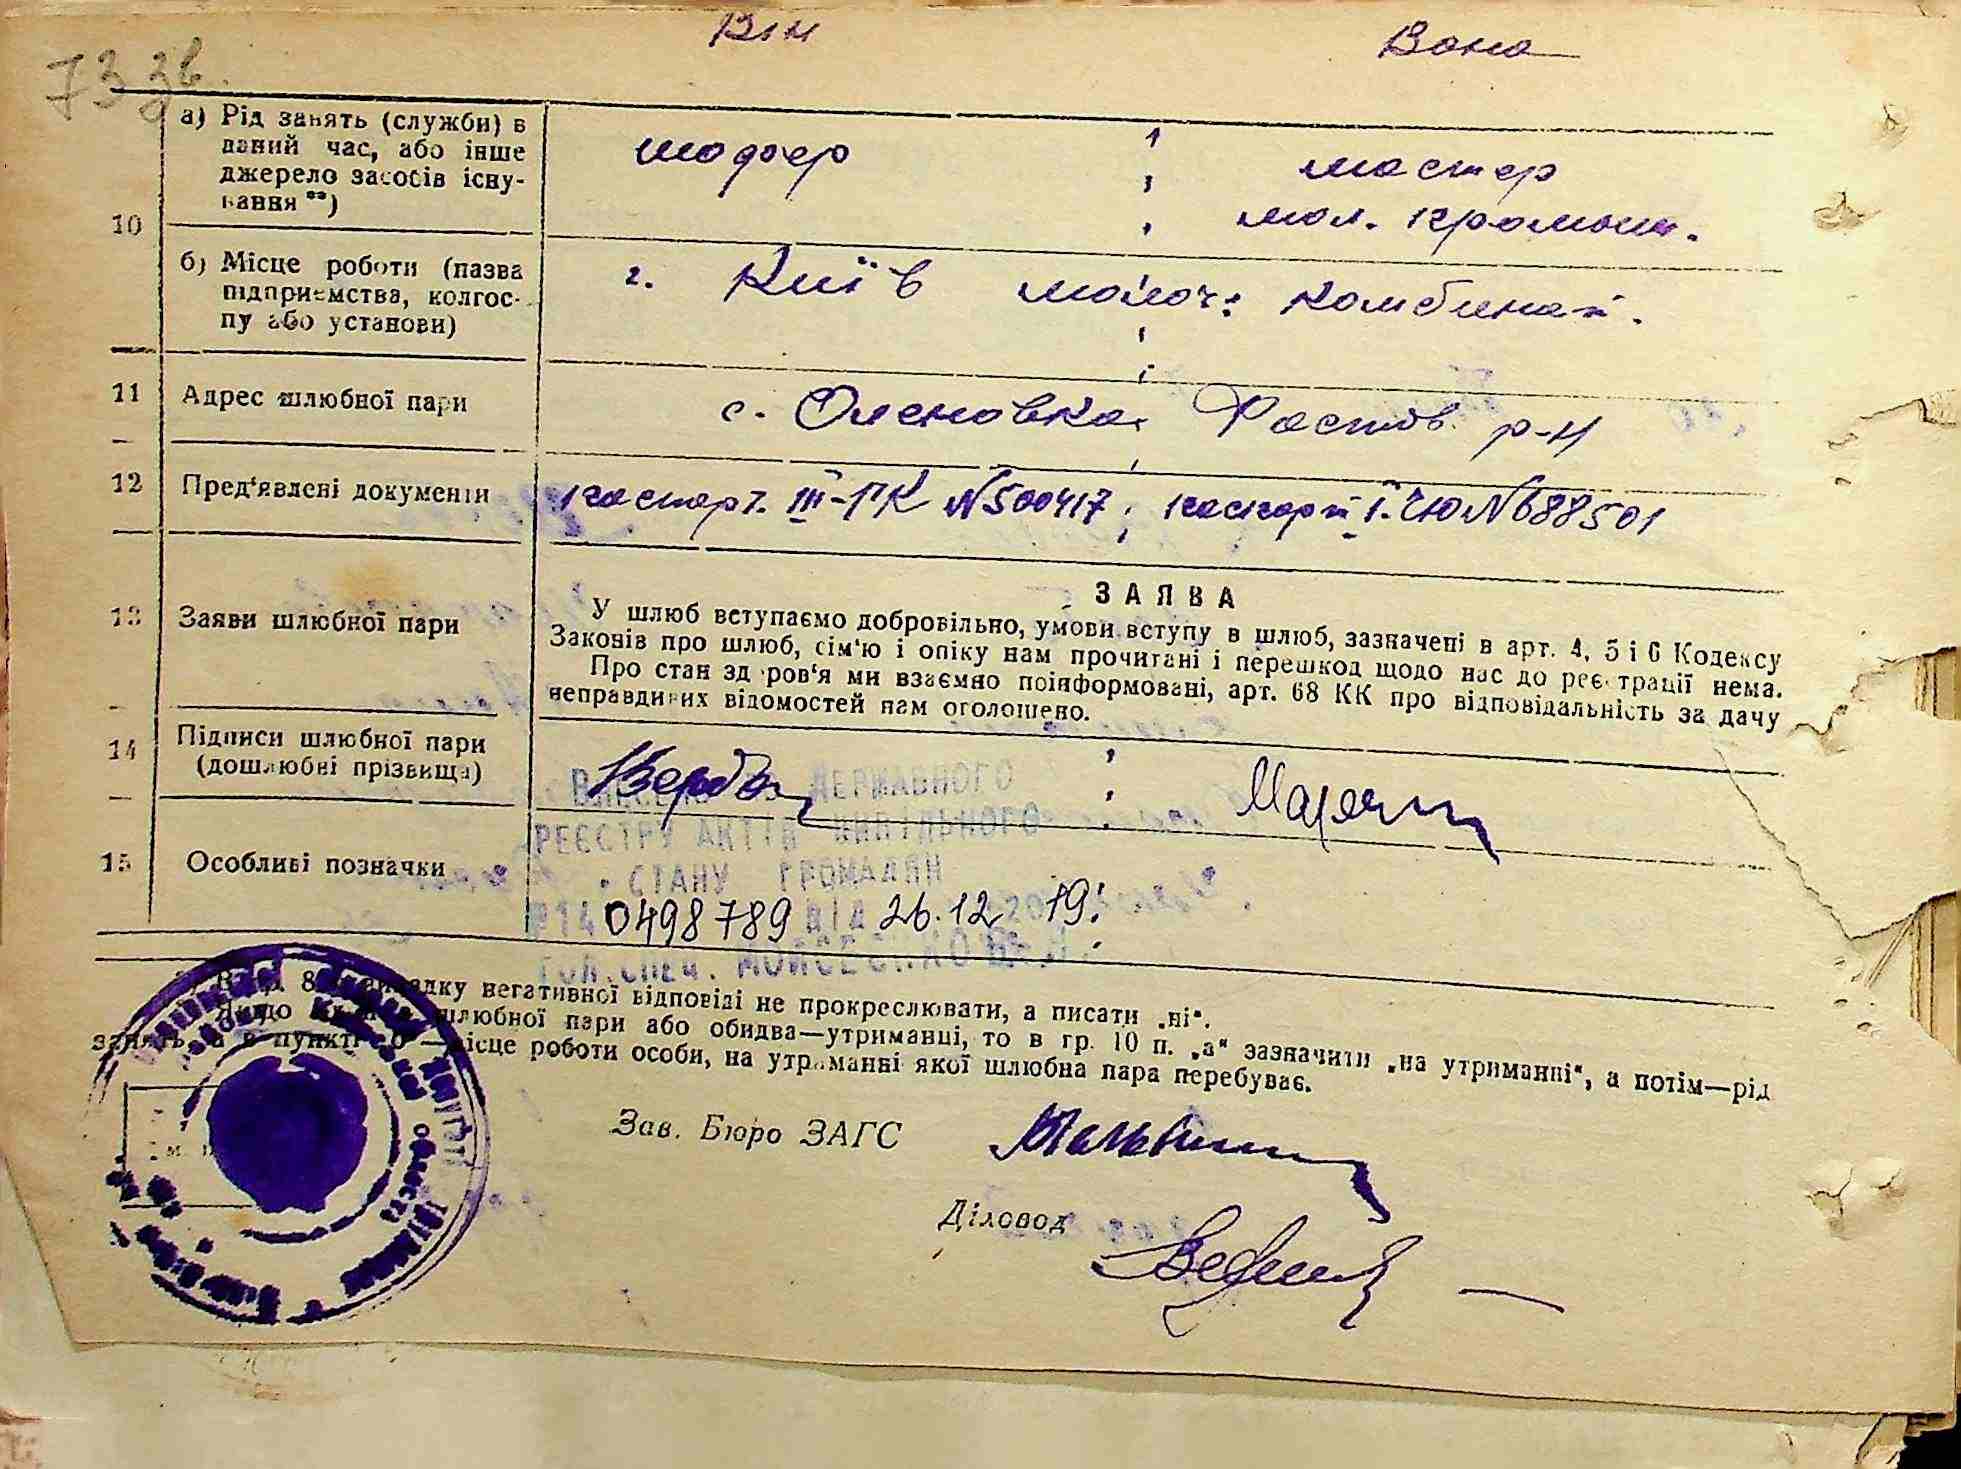 Він Вона
73 зв.
10
а) Рід занять (служби) в
даний час, або інше
джерело засобів існу-
вання **)
шофер
мастер
мол. промыш.
б) Місце роботи (назва
підприємства, колгос-
пу або установи)
г. Київ молоч. комбинат.
11 Адрес шлюбної пари
с. Оленовка, Фастов. р-н
12 Пред'явлені документи
паспорт. III-ПК N 500417; паспорт I-ЧЮ N 688501
13 Заяви шлюбної пари
ЗАЯВА
У шлюб вступаємо добровільно, умови вступу в шлюб, зазначені в арт. 4, 5 і 6 Кодексу
Законів про шлюб, сім'ю і опіку нам прочитані і перешкод щодо нас до реєстрації нема.
Про стан здоров'я ми взаємно поінформовані, арт. 68 КК про відповідальність за дачу
неправдивих відомостей нам оголошено.
14 Підписи шлюбної пари
(дошлюбні прізвища)
15 Особливі позначки
ВНЕСЕНО ДО ДЕРЖАВНОГО
РЕЄСТРУ АКТІВ ЦИВІЛЬНОГО
СТАНУ ГРОМАДЯН
№14 0498789 від 26.12 2019
ГОЛ.СПЕЦ. МОЙСЕЄНКО
8 випадку негативної відповіді не прокреслювати, а писати „ні“.
Якщо шлюбної пари або обидва—утриманці, то в гр. 10 п. „а“ зазначити „на утриманні“, а потім—рід
занять, а в пункті б —місце роботи особи, на утриманні якої шлюбна пара перебуває.
Зав. Бюро ЗАГС
Діловод